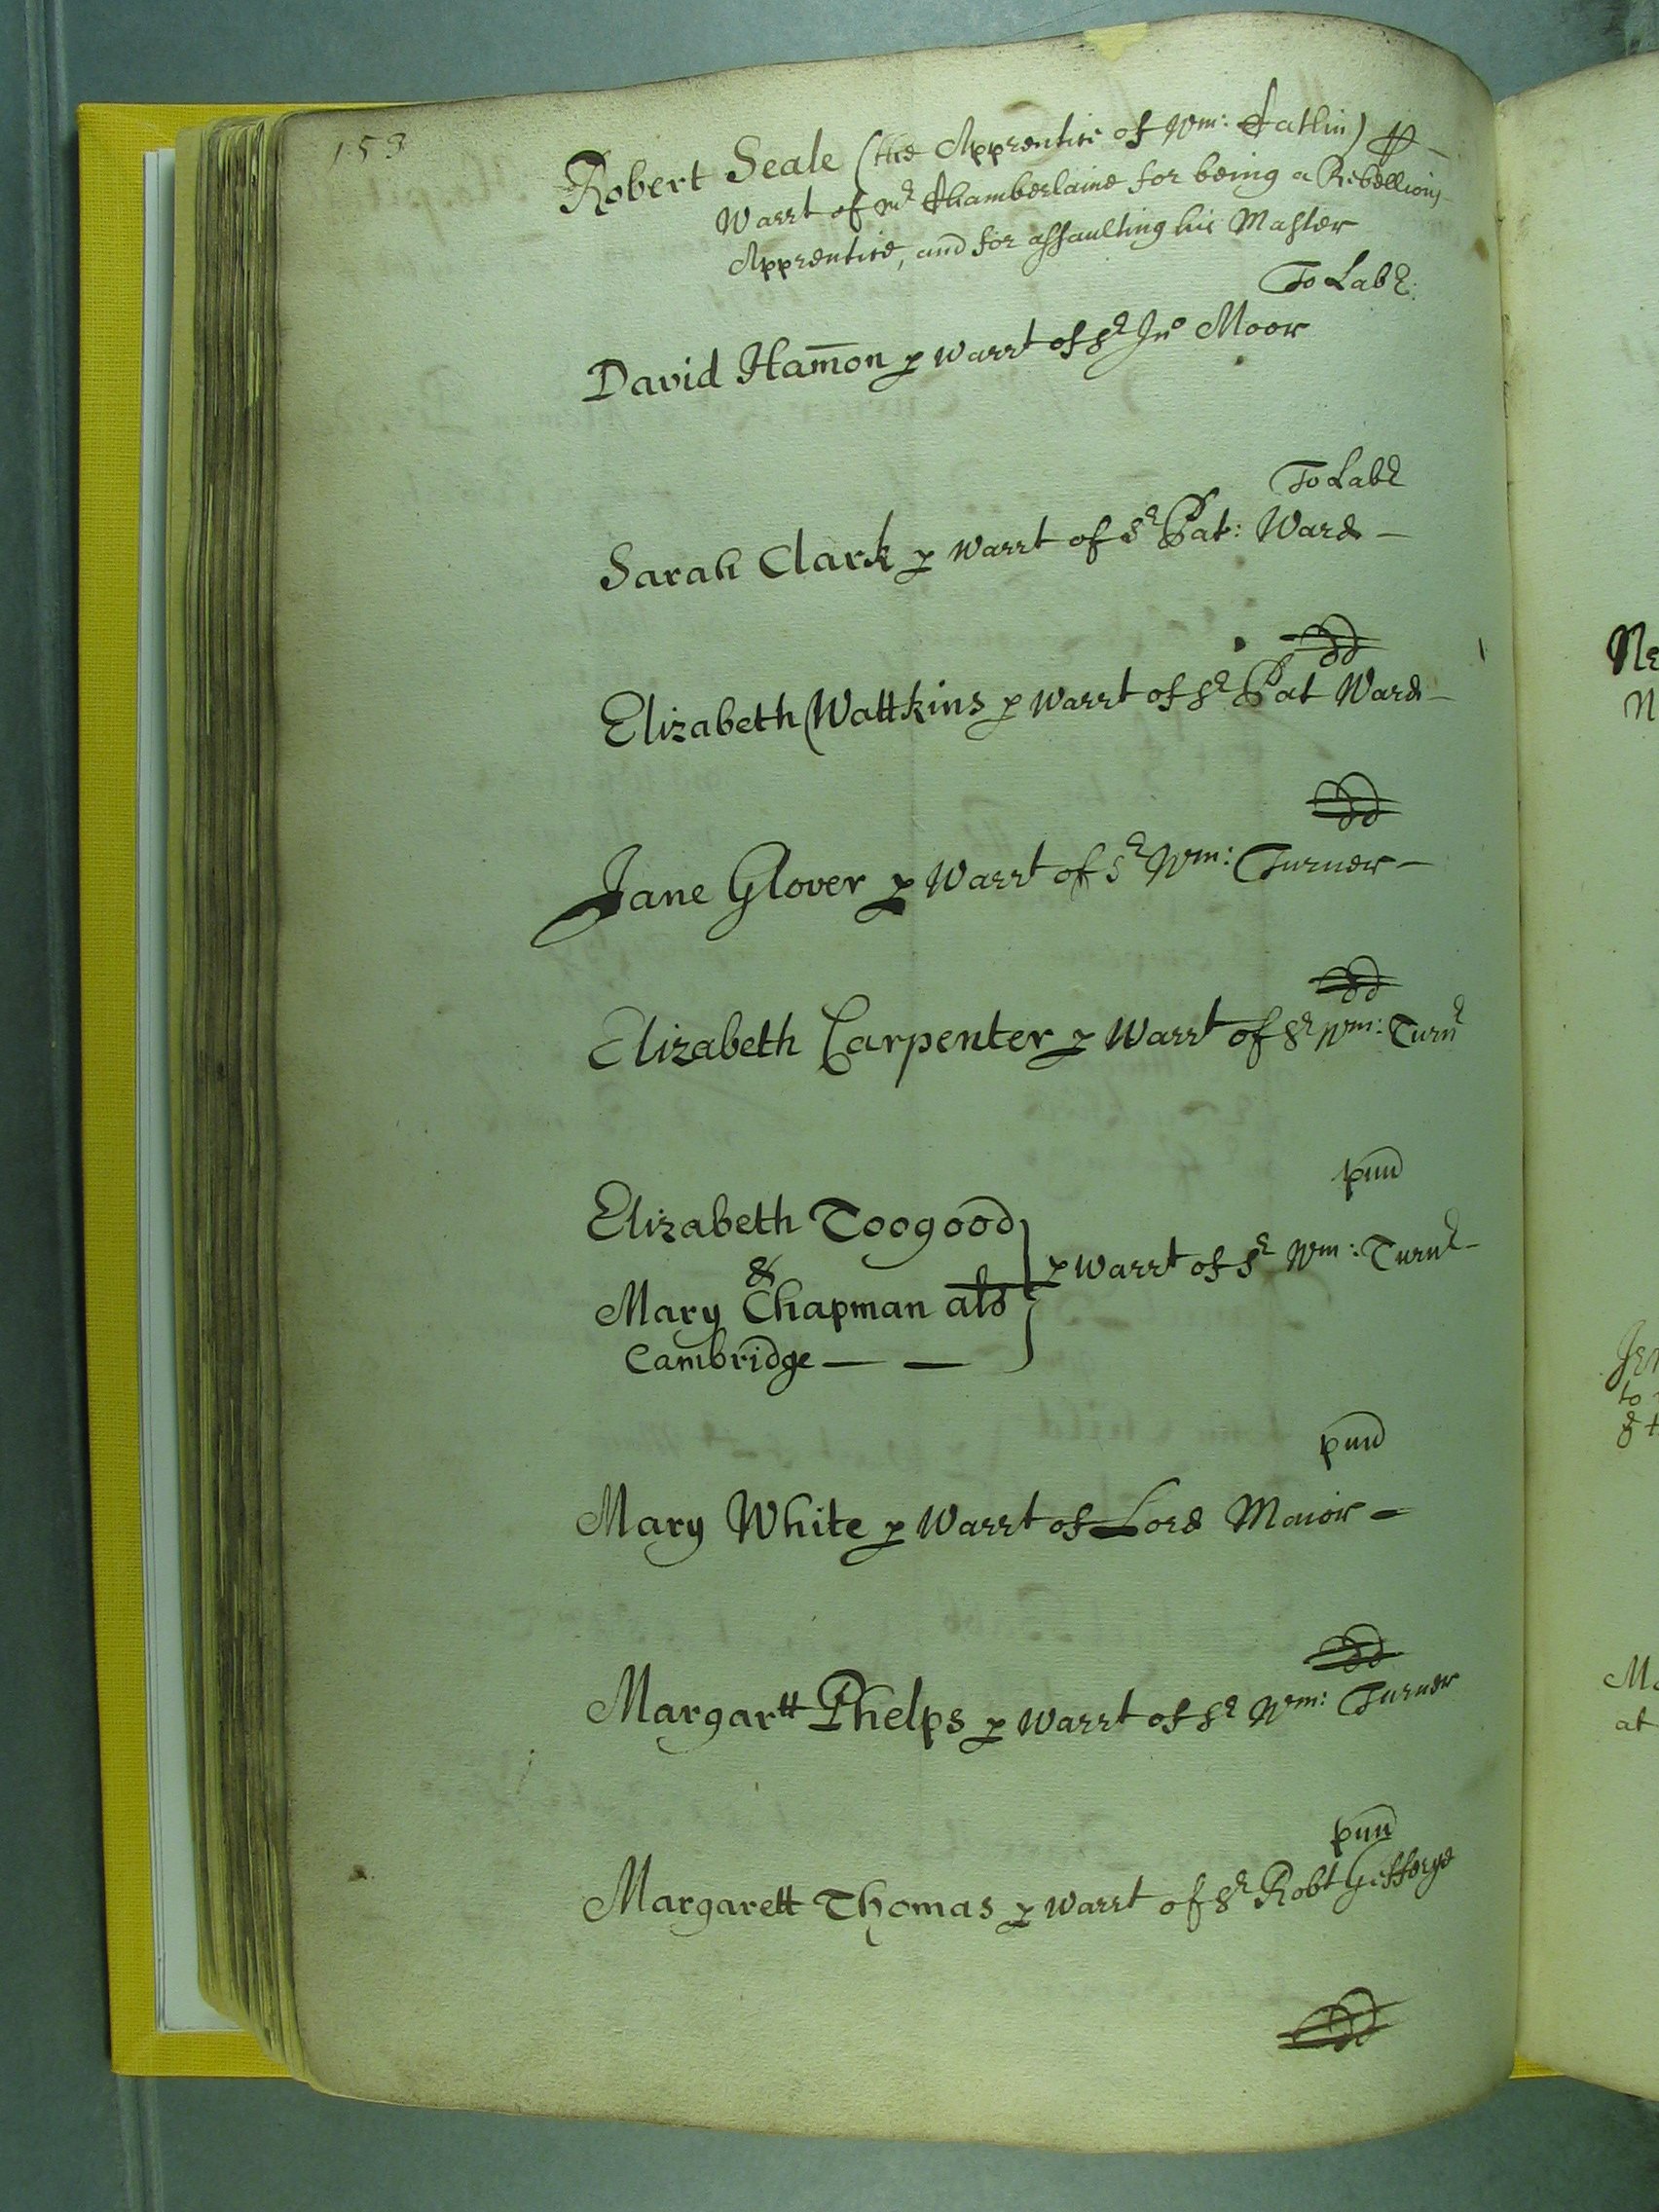 153
Robert Seale (the Apprentice of Wm: Catlin) p
Warrt of mr Chamberlaine for being a Rebellious
Apprentice, and for assaulting his Master
To Labr:
David Ham̄on p warrt of Sr Jno Moor
To Labr
Sarah Clark p warrt of Sr Pat: Ward —
dd
Elizabeth Wattkins p warrt of Sr Pat Ward —
dd
Jane Glover p Warrt of Sr Wm: Turner —
dd
Elizabeth Carpenter p Warrt of Sr Wm: Turnr
pun̄d
Elizabeth Toogood
& p warrt of Sr Wm: Turnr —
Mary Chapman als
Cambridge — —
pun̄d
Mary White p Warrt of Lord Maior —
dd
Margartt Phelps p warrt of Sr Wm: Turner
pun̄d
Margarett Thomas p warrt of Sr Robt
dd
Ne
N
to
at